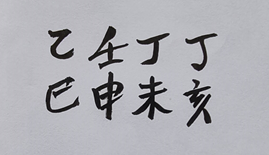 乙壬丁丁
巳申未亥